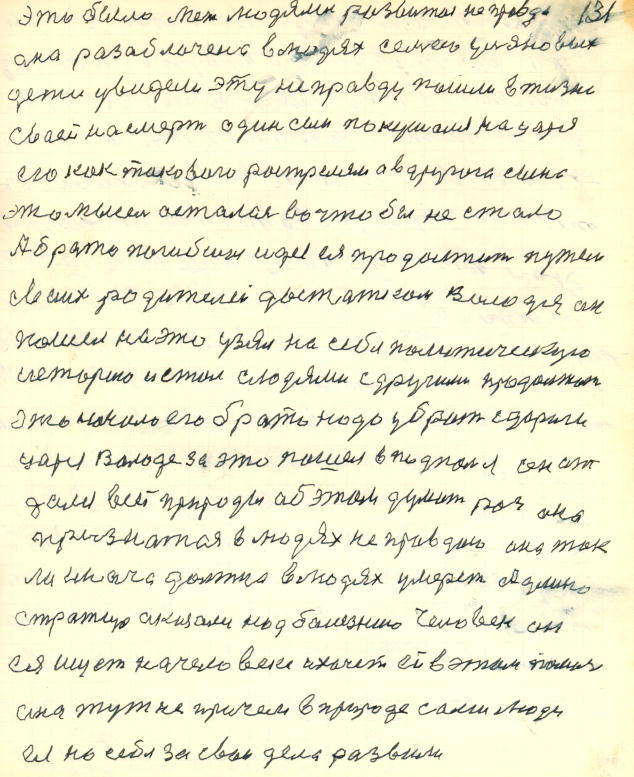 это было меж людями развитая неправда 131
она разаблачена в людях семью уляновых
дети увидели эту неправду пошли в жизни
своей на смерт один сын покушался на царя
его как такового ростреляли а вдругога сына
это мысел осталася во чтобы не стало
А брата погибши идея продолжит путем
своих родителей достатком Володя он
пошел на это узял на себя политическую
историю и стал слюдями сдругими продолжат
это начало его брата надо убрат сдороги
царя Володе за это пошел в подполя он от
дали всей природы об этом думит раз она
признатая в людях не правдаю она так
ли иначе должна в людях умерет Админо
стратир сказали над болезнию Человек он
ея ищет на человеке и хочет ей в этом
она тут не причем в природе сами люди
ея на себя за свои дела развили